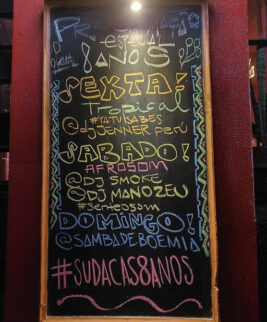 PROGRAMAÇÃO
especial
8 ANOS
SEXTA!
Tropical
#YATUSABES
@djJENNER PERÚ
SABADO!
AFROSOM
@DJ SMOKE
@DJ MANOZEU
#senteosom
DOMINGO!
@SAMBADEBOEMIA
#SUDACAS8ANOS